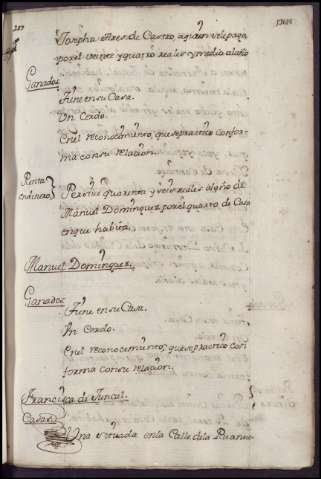 Josepha Ares de Castro, a quien se le paga
por el veinte y quatro reales y medio al año
Ganados
Tiene en su Casa.
Un Cerdo.
En el reconocimiento, que se practicó confor-
ma con su relacion.
Renta
en dinero
Percive quarenta y seis reales al año de
Manuel Dominguez por el quarto de Casa
en que havita.
Manuel Dominguez.
Ganados
Tiene en su Casa.
Un Cerdo.
En el reconocimiento, que se practicó con
forma con su relacion.
Francisca de Juncal.
Casas
Una situada en la Calle de la Ruanue-